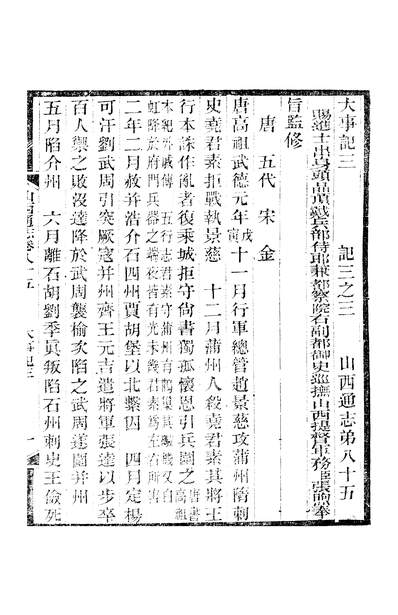 大事記三　記三之三　山西通志第八十五
賜進士出身頭品頂戴兵部侍郎兼都察院右副都御史巡撫山西提督軍務臣張煦奉
旨監修
唐　五代　宋　金
唐高祖武德元年戊寅十一月行軍總管趙景慈攻蒲州隋刺
史堯君素拒戰執景慈　十二月蒲州人殺堯君素其將王
行本誅作亂者復乘城拒守尚書獨孤懷恩引兵圍之唐書高祖
二年二月赦幷浩介石四州賈胡堡以北繫囚　四月定楊
可汗劉武周引突厥寇幷州齊王元吉遣將軍張達以步卒
百人禦之敗沒達降於武周襲榆次陷之武周遂圍幷州
五月陷介州　六月離石胡劉季真叛陷石州刺史王儉死
山西通志卷八十五　大事記三　一